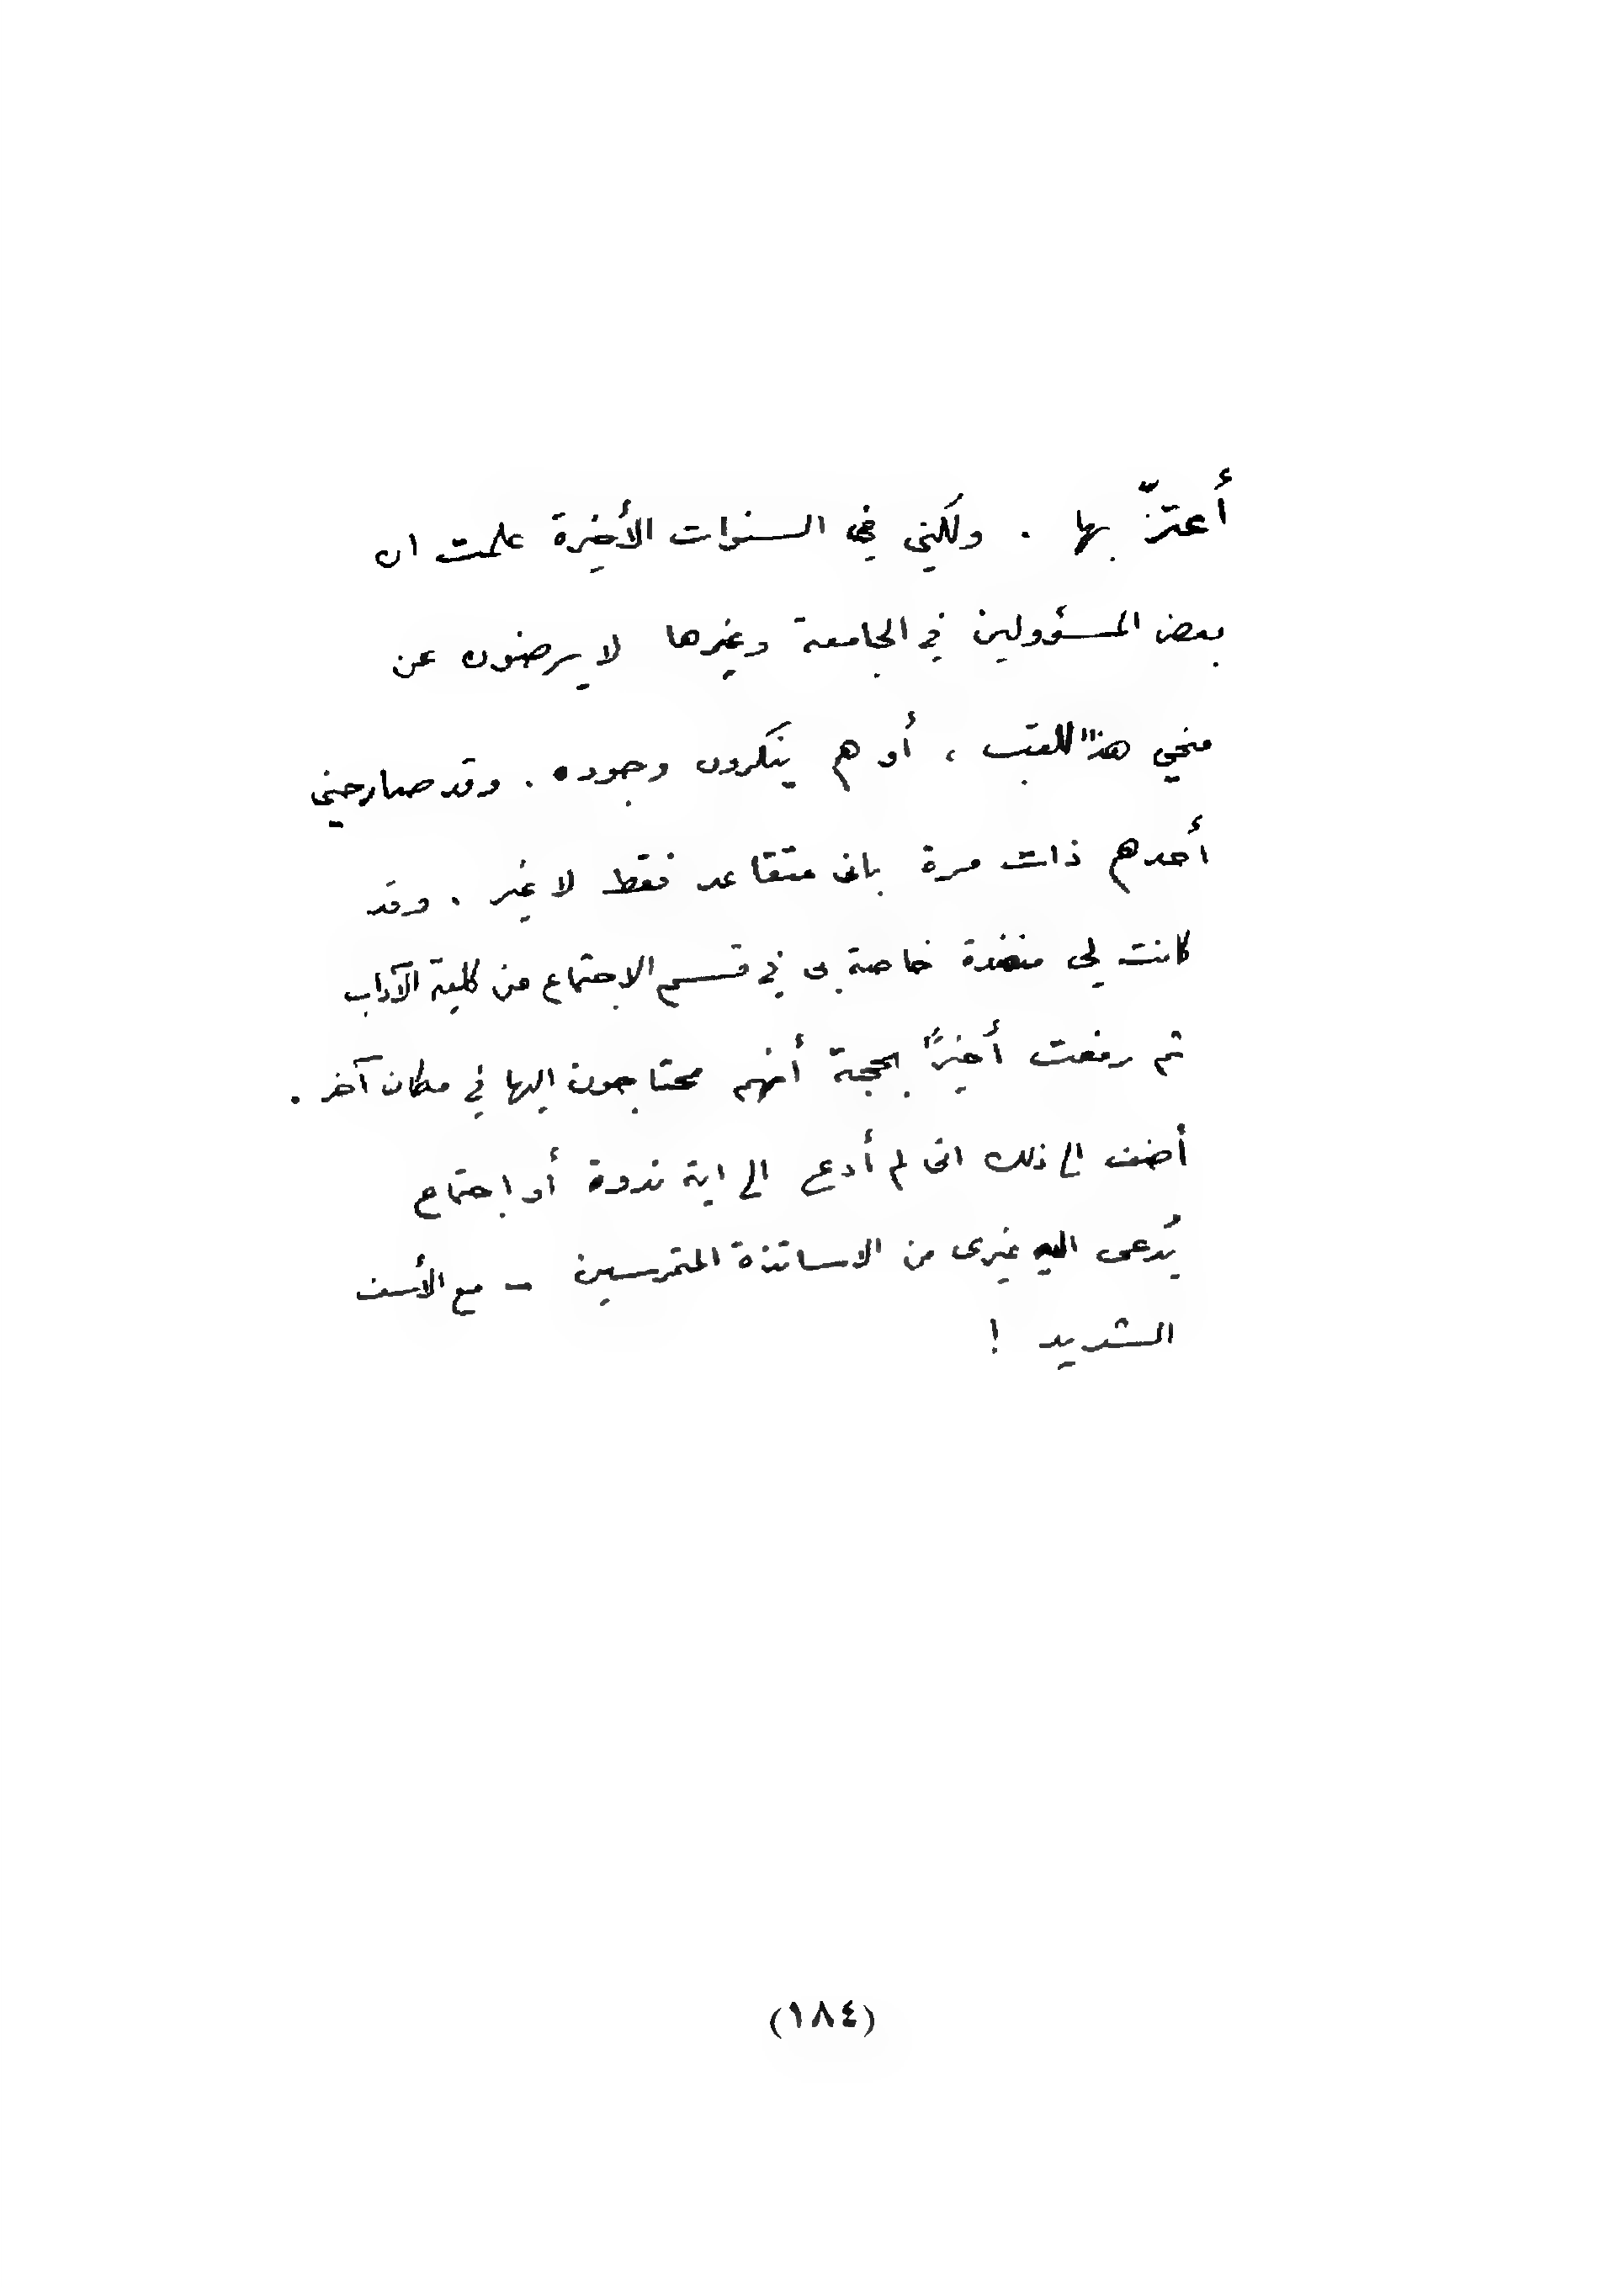 أعتزّ بها . ولكني في السنوات الأخيرة علمت ان
بعض المسؤولين في الجامعة وغيرها لا يرضون عن
منحي هذا اللقب ، أو هم ينكرون وجوده . وقد صارحني
أحدهم ذات مرة بانى متقاعد فقط لا غير . وقد
كانت لي منضدة خاصة بى في قسم الاجتماع من كلية الآداب
ثم رفعت أخيرًا بحجة أنهم محتاجون اليها في مكان آخر .
أضف الى ذلك انى لم أدع الى اية ندوة أو اجتماع
يُدعى اليه غيرى من الاساتذة المتمرسين – مع الأسف
الشديد !
(١٨٤)